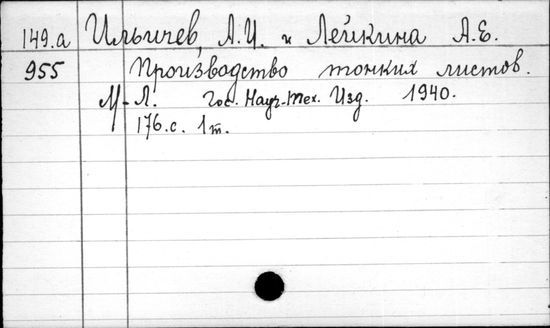 149.a Ильичев, А.И. и Лейкина А.Е.
955 Производство тонких листов.
М-Л. Гос. Науч.-Тех. Изд. 1940.
176.с. 1т.